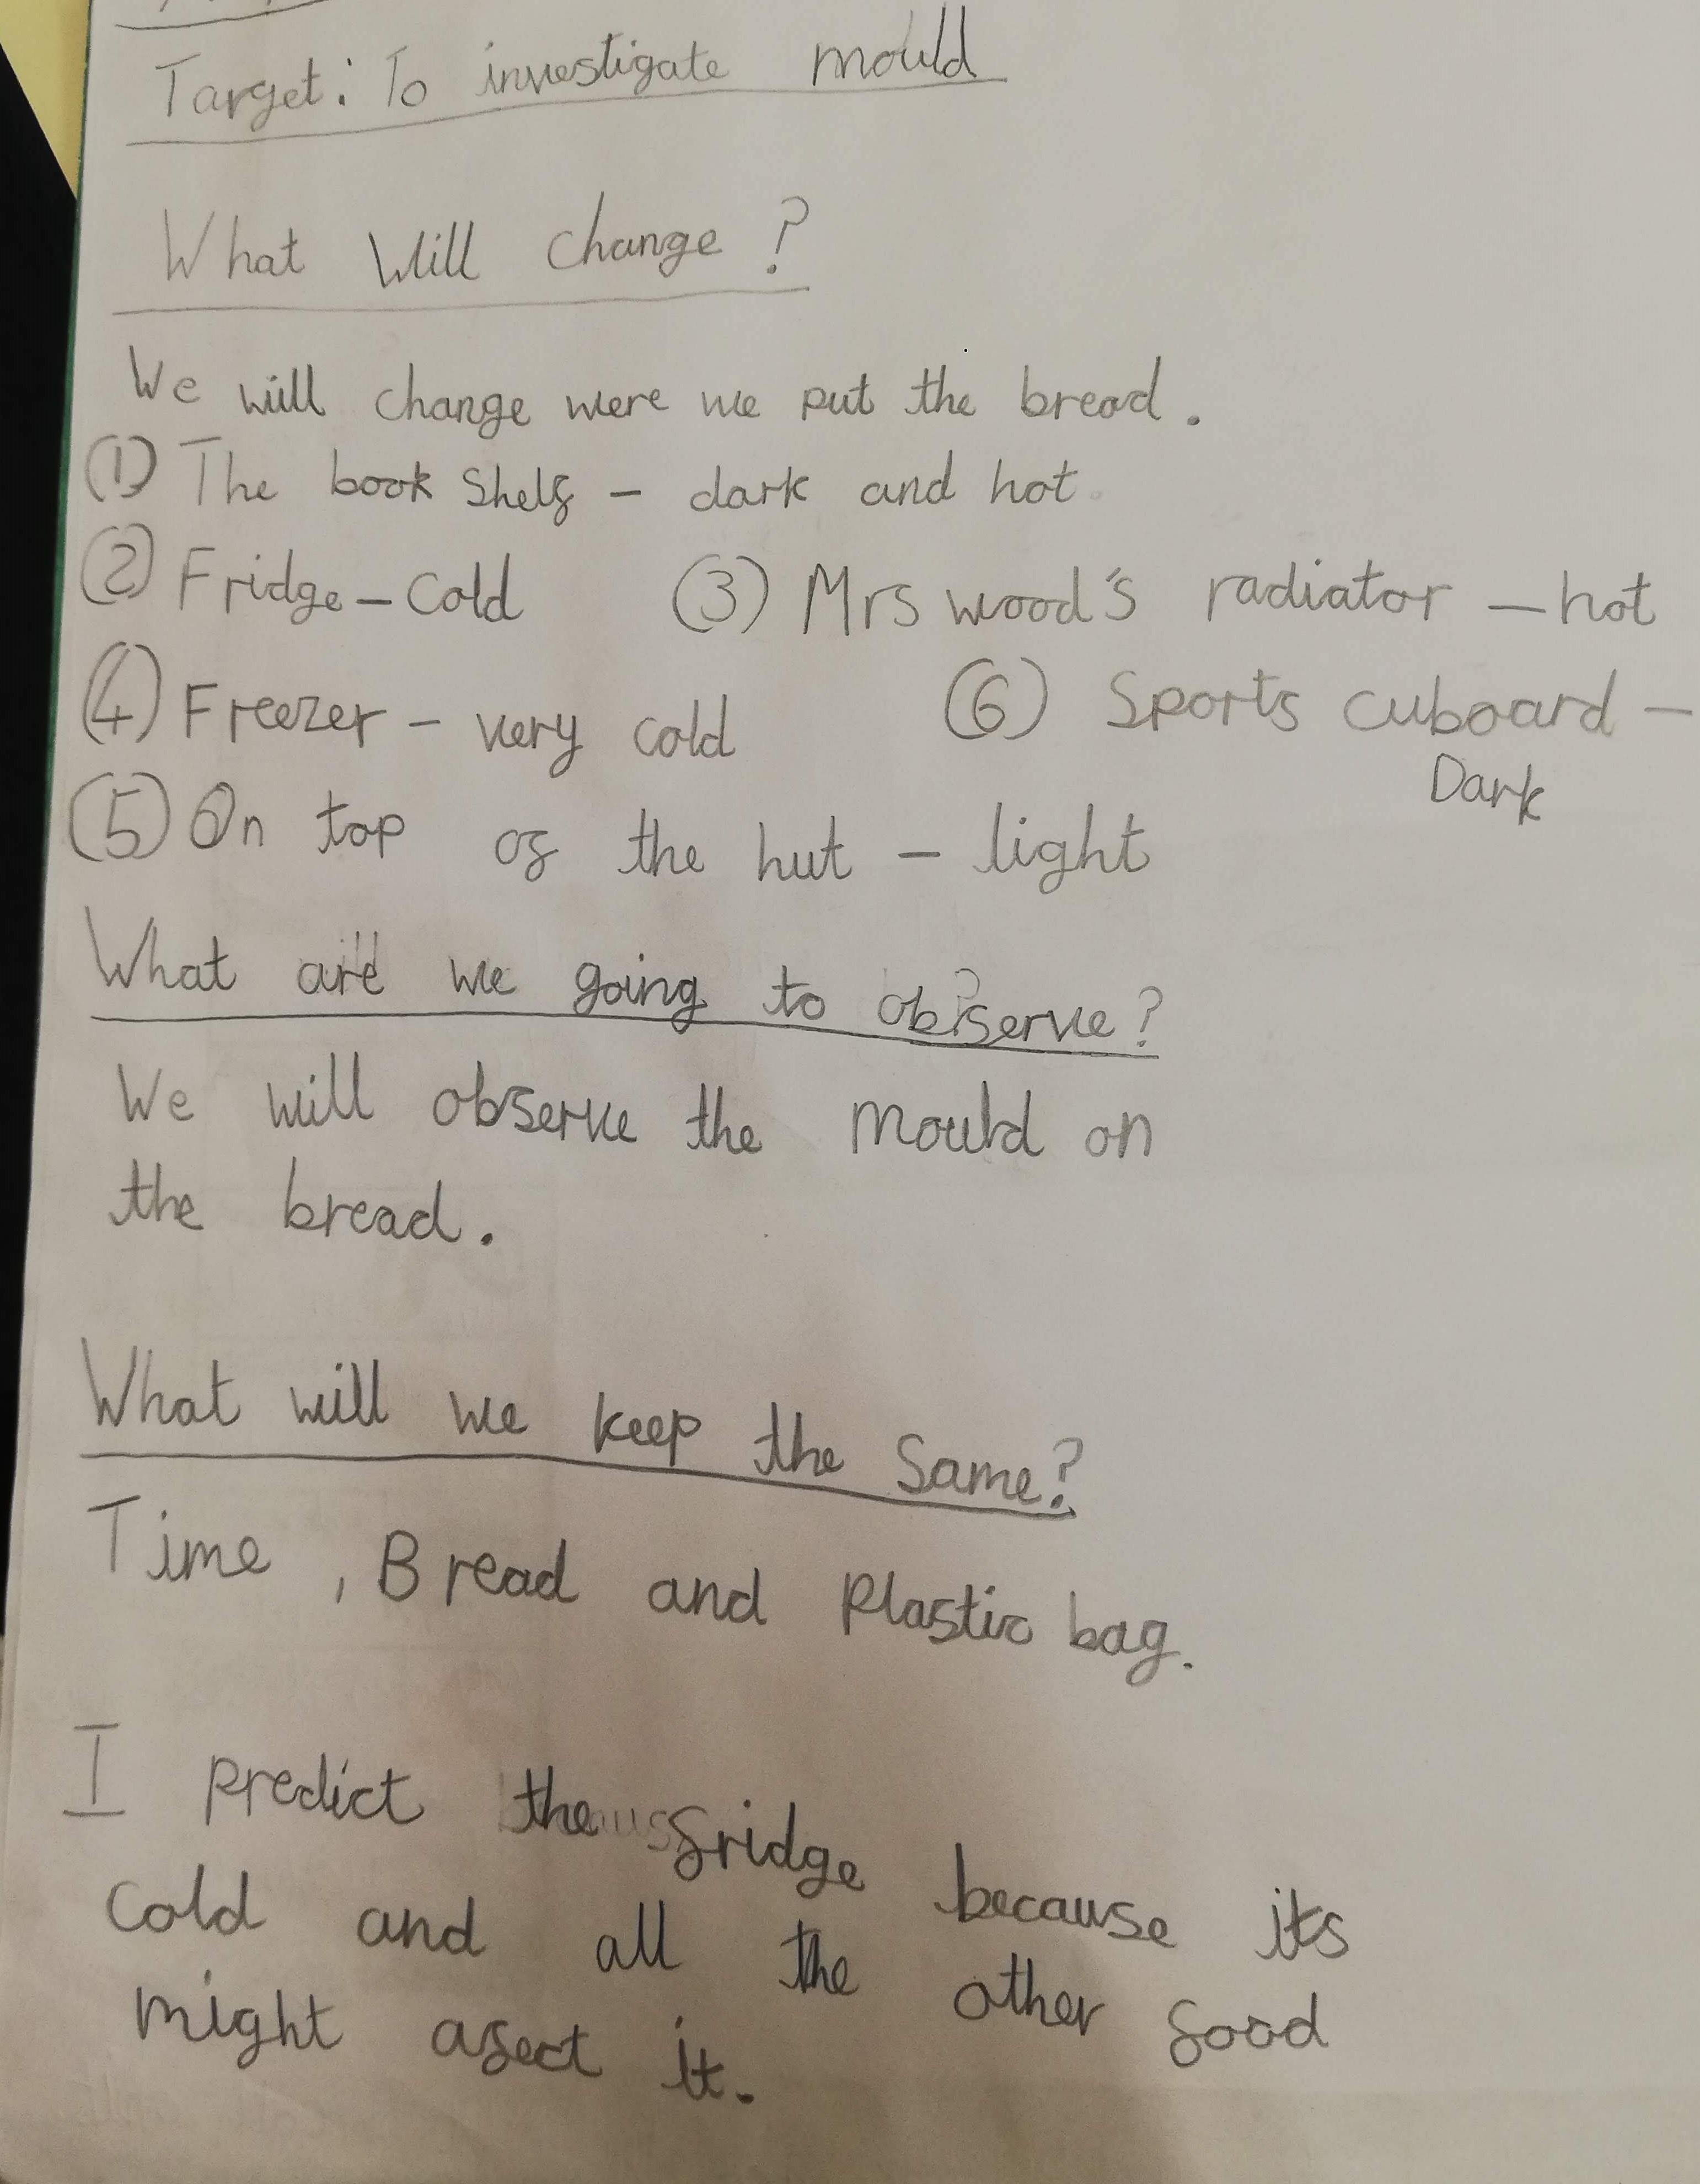 Target: To investigate mould
What Will change?
We will change were we put the bread.
(1) The book Shelf - dark and hot
(2) Fridge - Cold (3) Mrs wood's radiator - hot
(4) Freezer - very cold (6) Sports cuboard -
Dark
(5) On top of the hut - light
What are we going to observe?
We will observe the Mould on
the bread.
What will we keep the Same?
Time, Bread and Plastic bag.
I predict the fridge because its
cold and all the other food
might afect it.